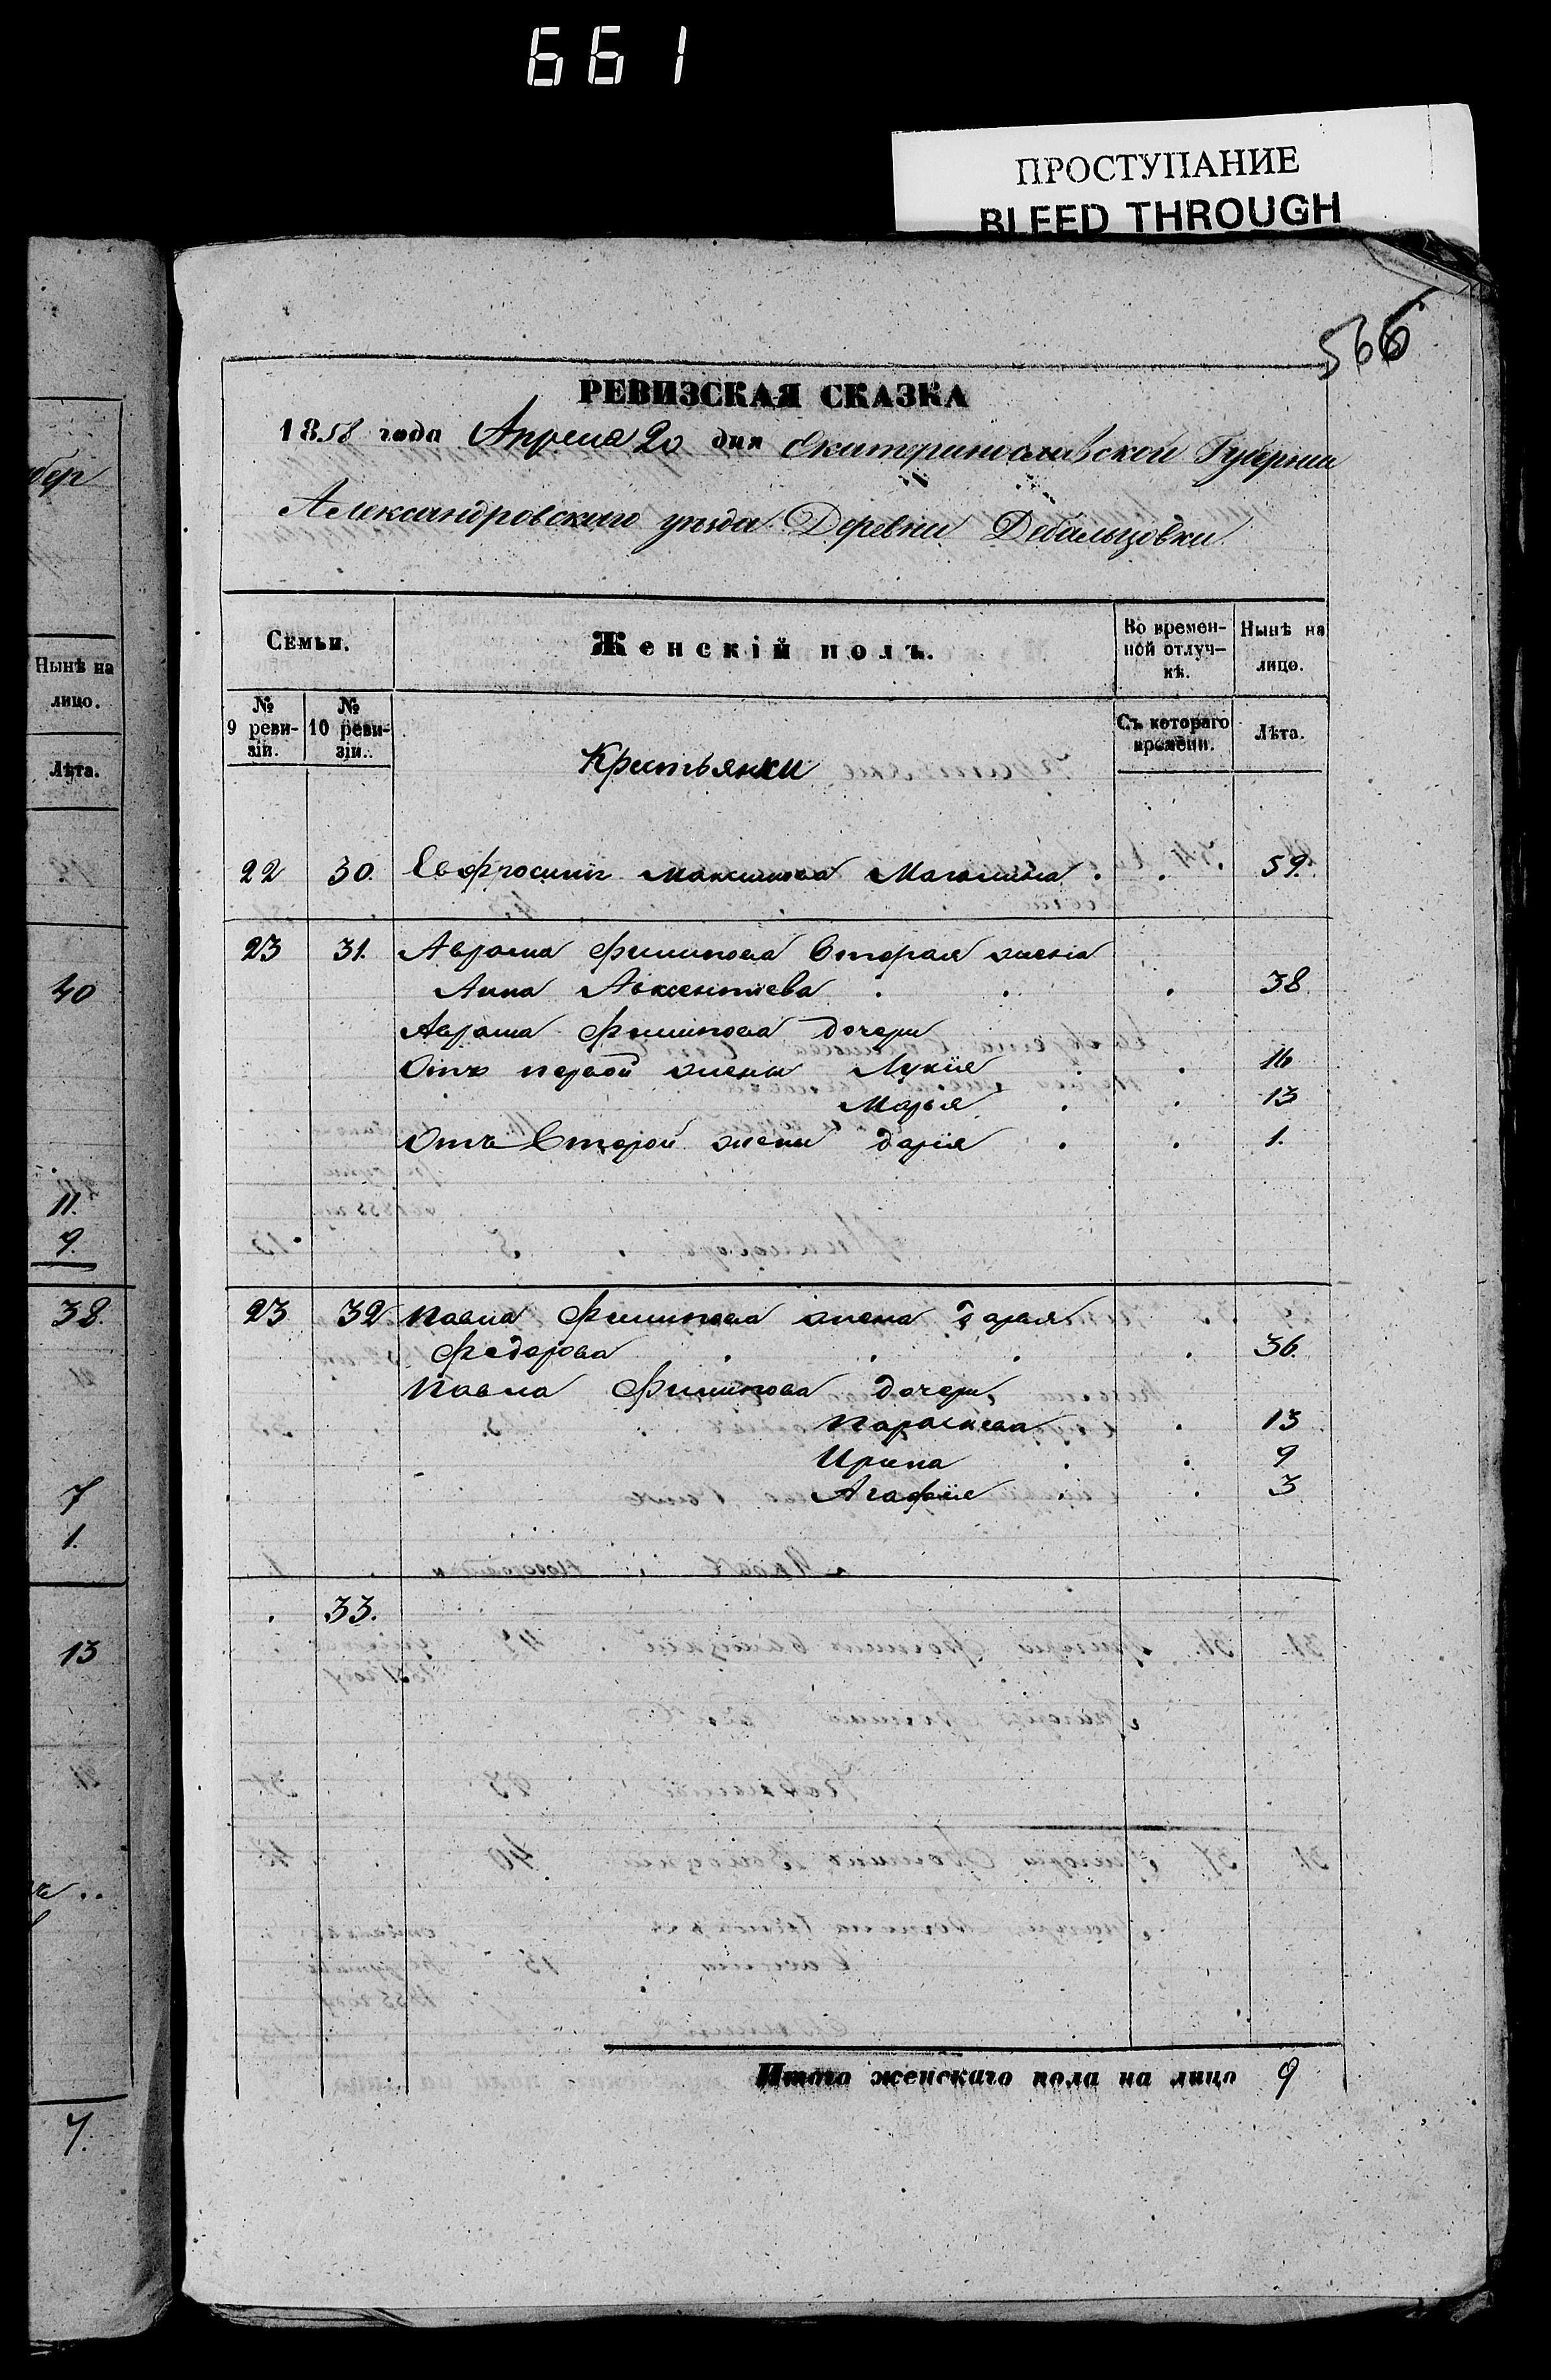 661
ПРОСТУПАНИЕ
BLEED THROUGH
566
РЕВИЗСКАЯ СКАЗКА
1858 года Апреля 20 дня Екатеринославской Губернии
Александровскаго уезда Деревни Дебальцовки
Нынѣ на лицо.
Лѣта.
40
11.
9.
38.
7
1.
13
7.
Семьи.
Женскій полъ.
Во времен-ной отлуч-кѣ.
Нынѣ на лицо.
№ 9 реви-зіи.
№ 10 реви-зіи.
Съ котораго времени.
Лѣта.
Крестьянки
22 30. Максимова 59.
23 31. Филипова Вторая жена
Анна Авксентиева 38.
Филипова дочери
Отъ первой жены Лукія 16
Марья 13
Отъ Второй жены Дарія 1.
23 32 Павла Филипова жена Дарья
Федорова 36.
Павла Филипова дочери
Параскева 13
Ирина 9
Агафія 3
33.
Итого женскаго пола на лицо 9